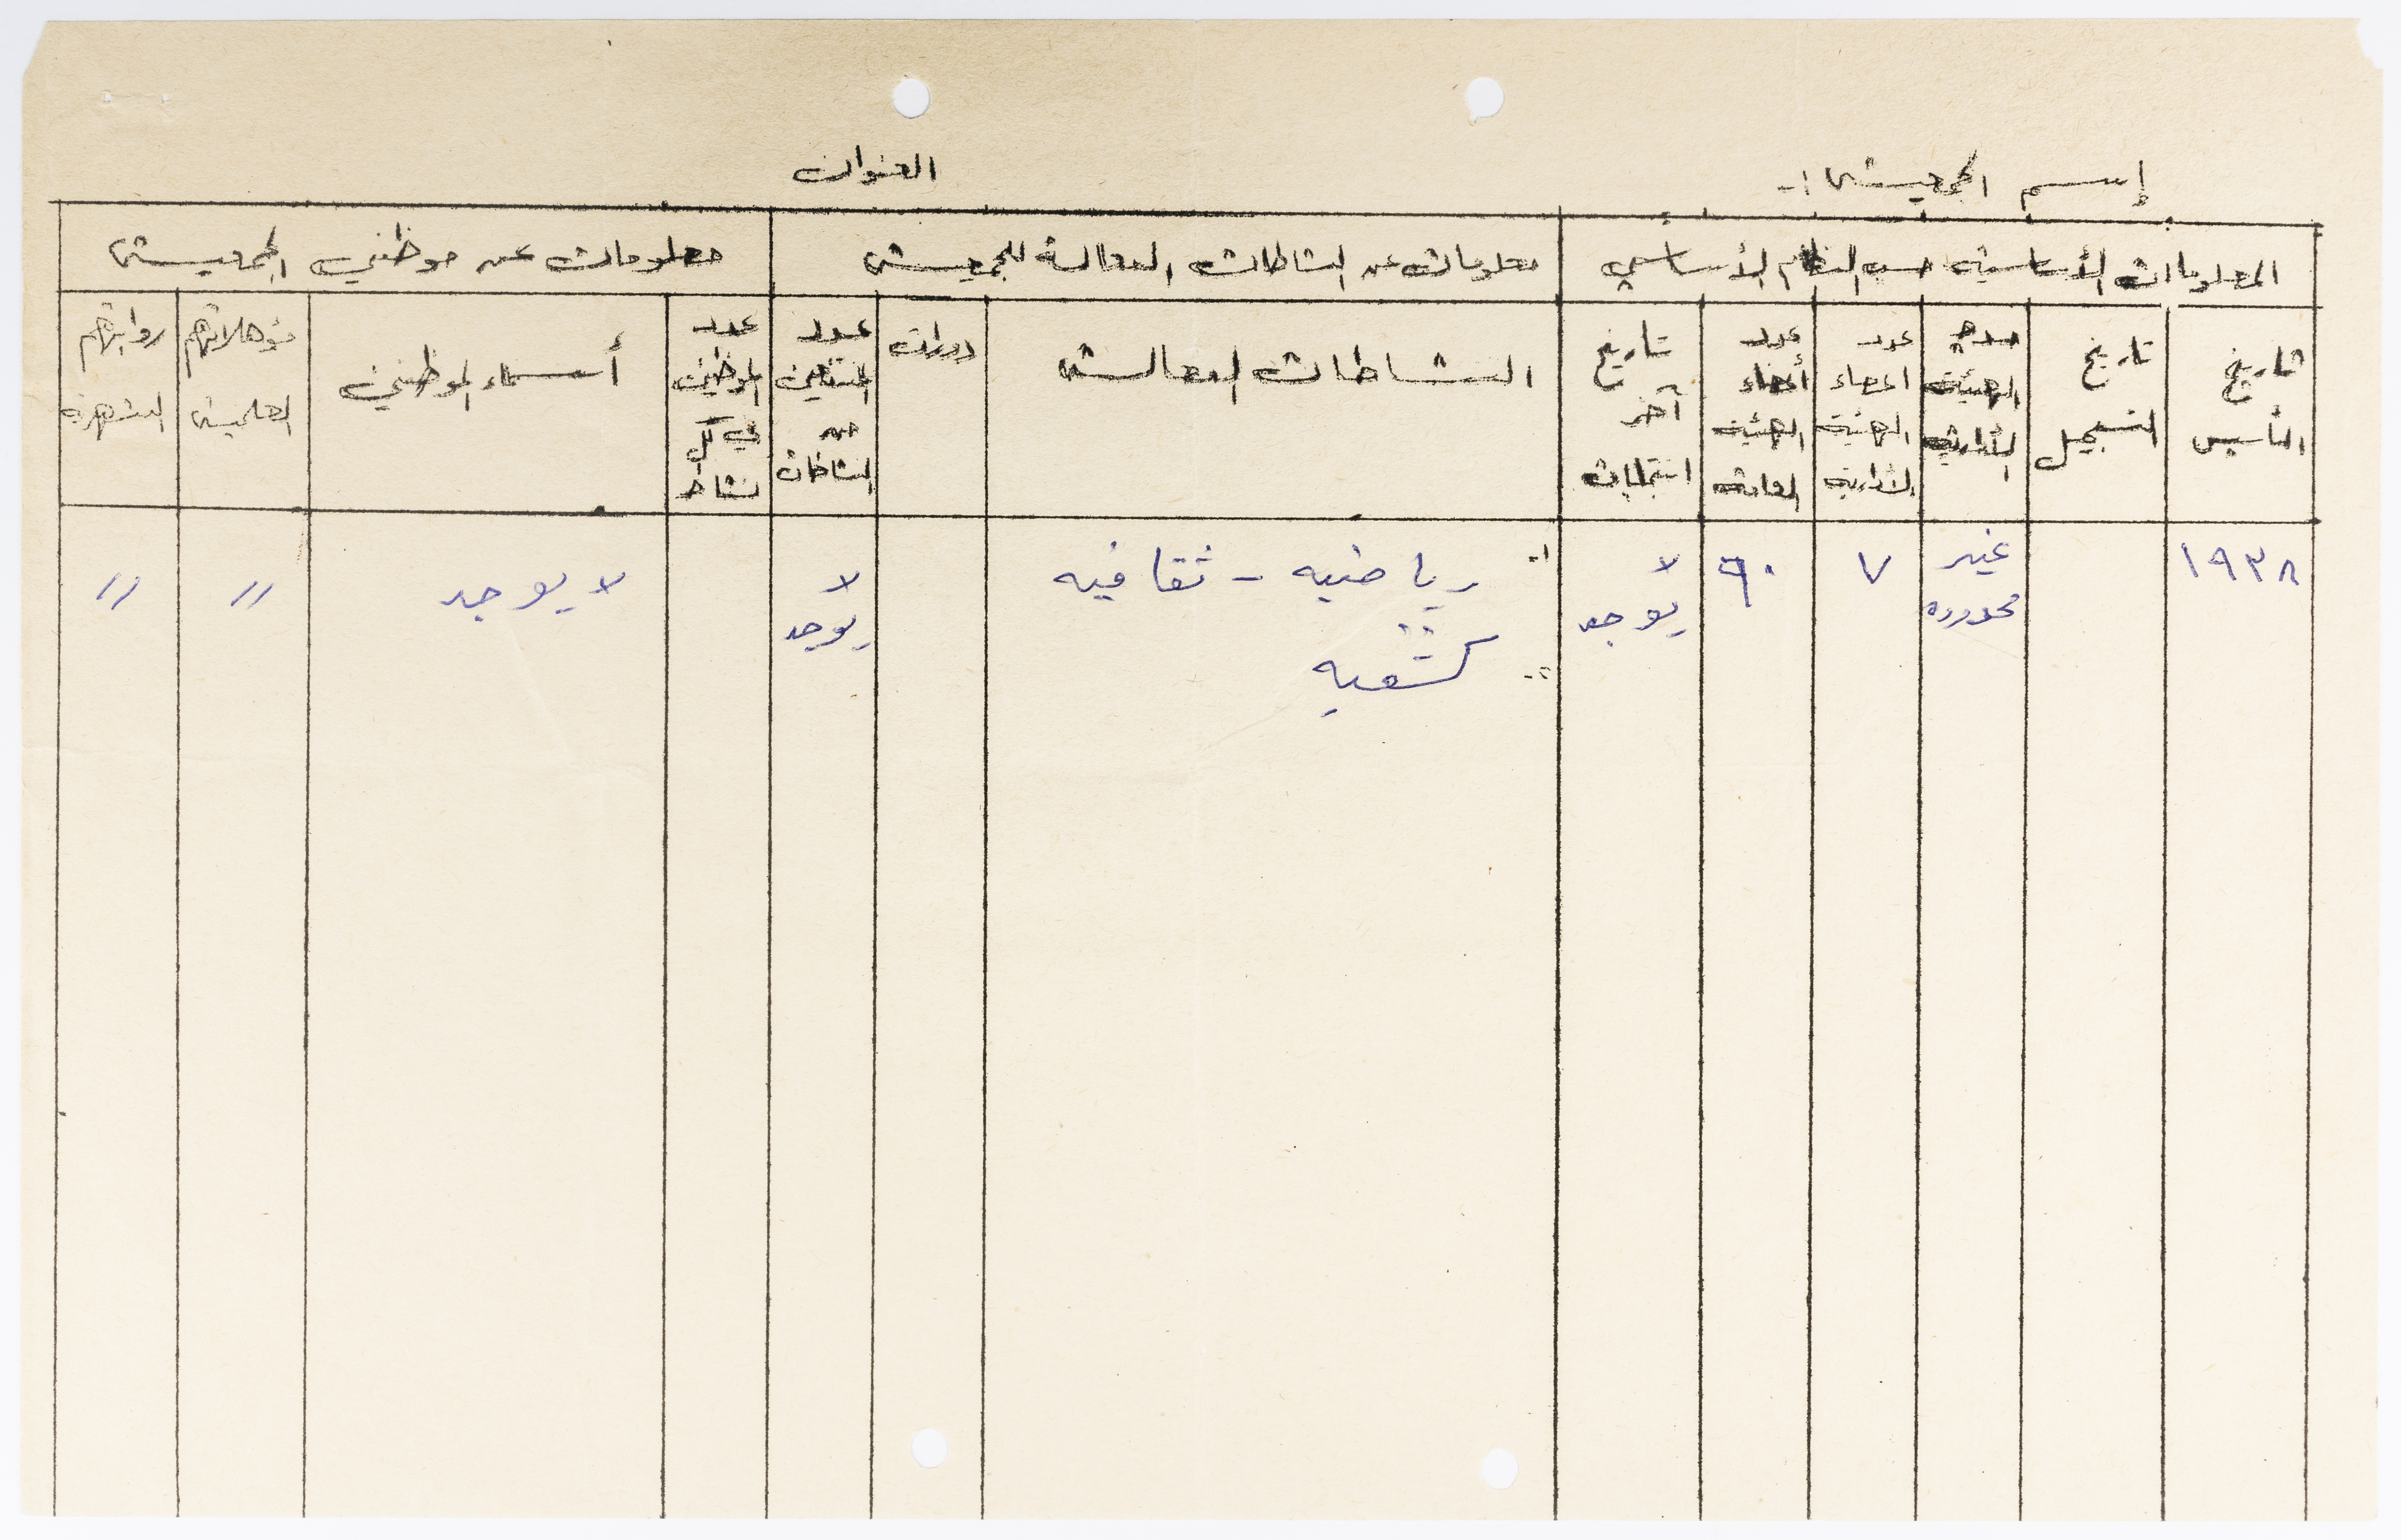 إسم الجمعية :-
العنوان
المعلومات الأساسية حسب النظام الأساسي
معلومات عن النشاطات الفعالة للجمعية
معلومات عن موظفي الجمعية
تاريخ
التأسيس
تاريخ
التسجيل
مدة
الهيئة
الأدارية
عدد
اعضاء
الهيئة
الأدارية
عدد
أعضاء
الهيئة
العامة
تاريخ
آخر
انتخابات
النشاطات الفعالة
دورات
عدد
المنتفعين
من
النشاطات
عدد
الموظفين
في كل
نشاط
أسماء الموظفين
مؤهلاتهم
العلمية
رواتبهم
الشهرية
١٩٣٨
غير
محدوده
٧
٩٠
لا
يوجد
١-
رياضيه - ثقافيه
٢-
كشفيه
لا
يوجد
لا يوجد
〃
〃